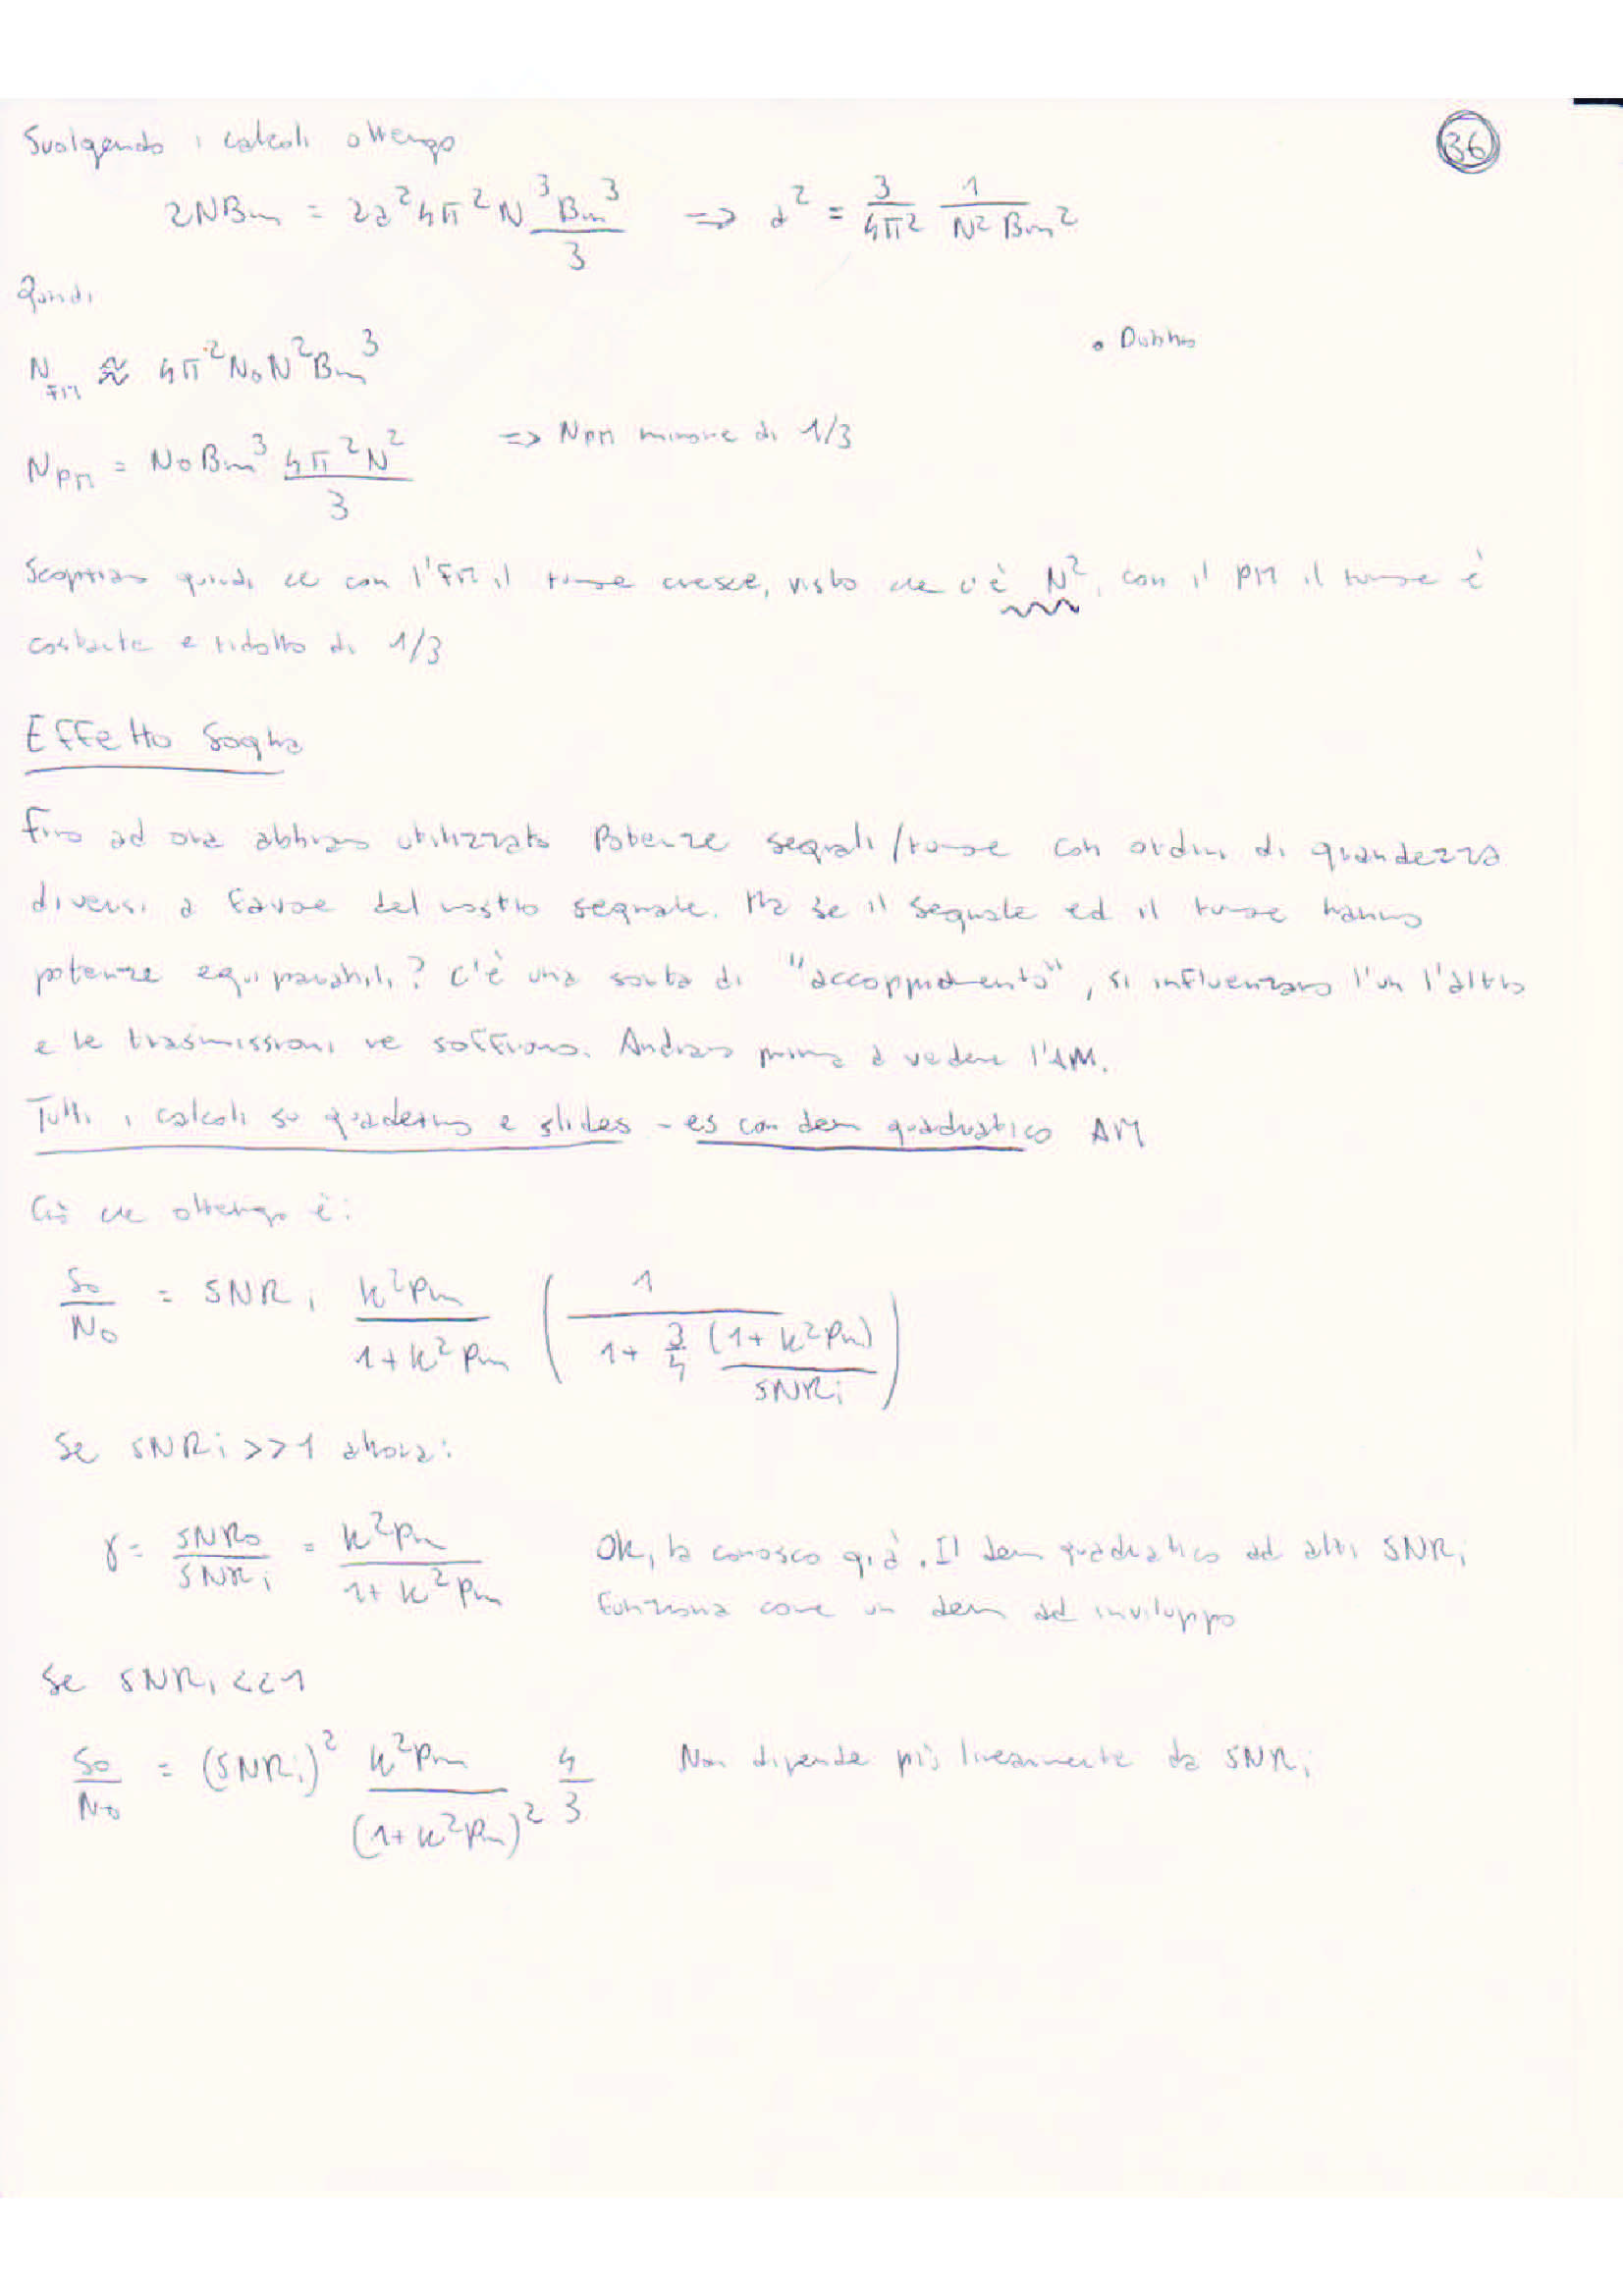 Svolgendo i calcoli ottengo
36
2NBm = 2a²4π²N³Bm³/3 => a² = 3/4π² 1/N²Bm²
Quindi
• Dubbio
N_FM ≈ 4π²N₀N²Bm³
N_PM = N₀Bm³ 4π²N²/3 => N_PM minore di 1/3
Scopriamo quindi che con l'FM il rumore cresce, visto che c'è N², con il PM il rumore è
costante e ridotto di 1/3
Effetto Soglia
Fino ad ora abbiamo utilizzato Potenze segnali/rumore con ordini di grandezza
diversi a favore del nostro segnale. Ma se il segnale ed il rumore hanno
potenze equiparabili? C'è una sorta di "accoppiamento", si influenzano l'un l'altro
e le trasmissioni ne soffrono. Andiamo prima a vedere l'AM.
Tutti i calcoli su quaderno e slides - es con dem quadratico AM
Ciò che ottengo è:
So/No = SNRi k²Pm/1+k²Pm (1/1+ 3/4 (1+k²Pm)/SNRi)
Se SNRi >>1 allora:
γ = SNRo/SNRi = k²Pm/1+k²Pm Ok, la conosco già. Il dem quadratico ad alti SNRi
funziona come un dem ad inviluppo
Se SNRi <<1
So/No = (SNRi)² k²Pm/(1+k²Pm)² 4/3 Non dipende più linearmente da SNRi